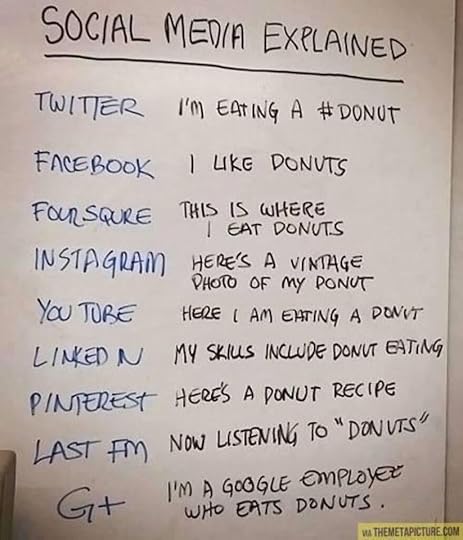 SOCIAL MEDIA EXPLAINED
TWITTER I'M EATING A #DONUT
FACEBOOK I LIKE DONUTS
FOURSQURE THIS IS WHERE
I EAT DONUTS
INSTAGRAM HERE'S A VINTAGE
PHOTO OF MY DONUT
YOU TUBE HERE I AM EATING A DONUT
LINKED IN MY SKILLS INCLUDE DONUT EATING
PINTEREST HERE'S A DONUT RECIPE
LAST FM NOW LISTENING TO "DONUTS"
G+ I'M A GOOGLE EMPLOYEE
WHO EATS DONUTS.
VIA THEMETAPICTURE.COM